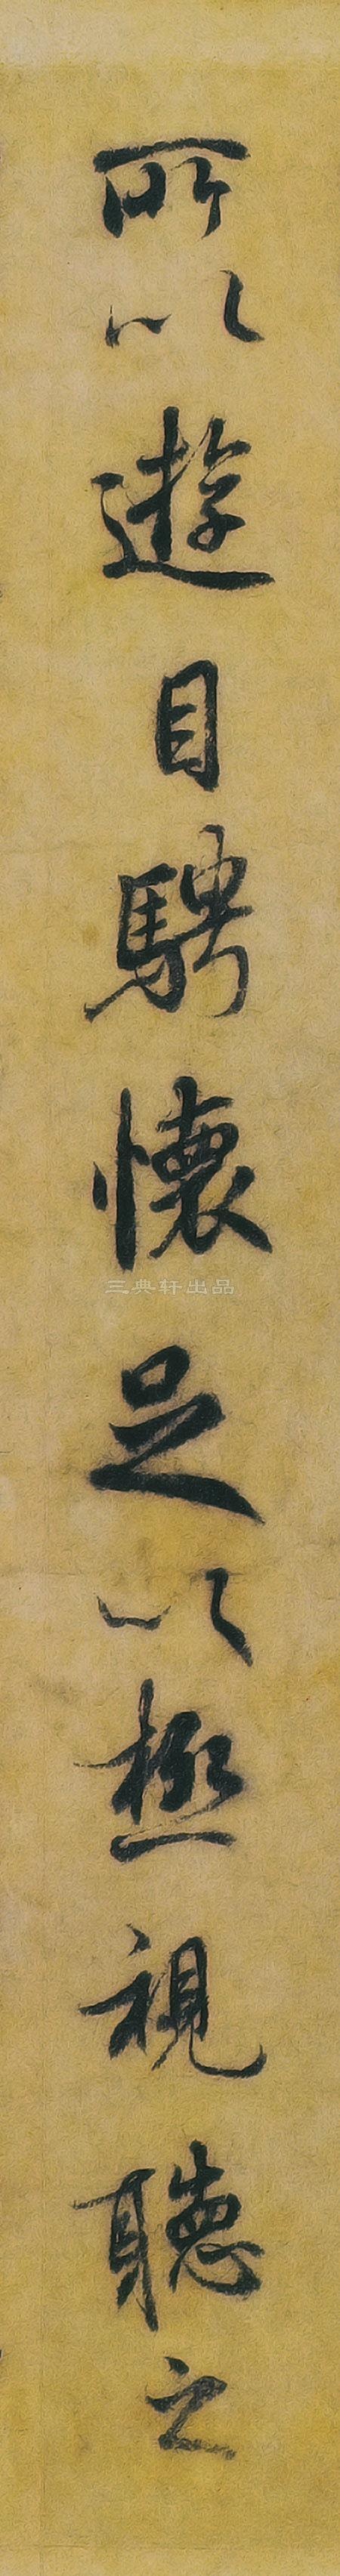 所以遊目騁懷足以極視聽之
三典轩出品